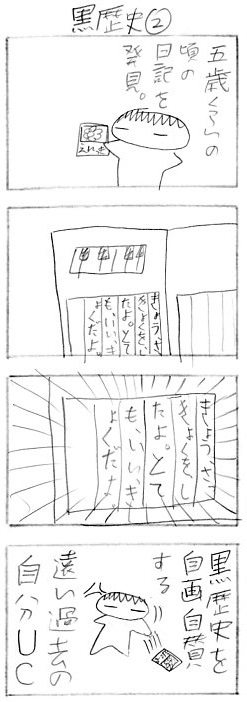 黒歴史②
五歳くらいの
頃の
日記を
発見。
えにっき
きょう、さ
きょくをし
たよ。とて
もいいき
ょくだよ。
きょう、さ
きょくをし
たよ。とて
もいいき
ょくだよ。
黒歴史を
自画自賛
する
遠い過去の
自分UC